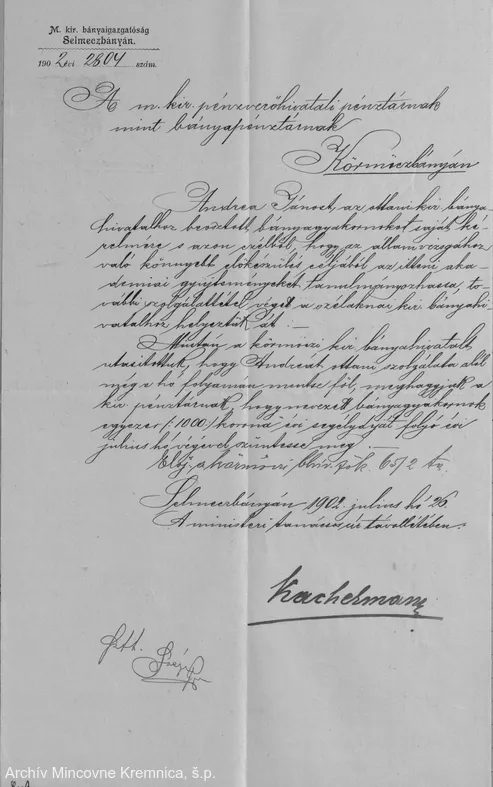 M. kir. bányaigazgatóság
Selmeczbányán.
1902 évi 2804 szám.
A m. kir. pénzverőhivatali pénztárnak
mint bányapénztárnak
Körmöczbányán
Andrea Jánost, az ottani kir. bánya-
hivatalhoz beosztott bányagyakornokot saját ké-
relmére s azon czélból, hogy az államvizsgához
való könnyebb előkészülés céljából az itteni aka-
demiai gyűjteményeket tanulmányozhassa, to-
vábbi szolgálattétel végett a szélaknai kir. bányahi-
vatalhoz helyeztük át. —
Miután a körmöczi kir. bányahivatalt
utasítottuk, hogy Andreát ottani szolgálata alól
még e hó folyamán mentse föl, meghagyjuk a
kir. pénztárnak, hogy nevezett bányagyakornok
egyezer (1000) korona évi segélydíját folyó évi
július hó végével szüntesse meg. —
Előj. a körmöczi 65/2
Selmeczbányán 1902. július hó 26.
A ministeri tanácsos úr távollétében:
Kachelmann